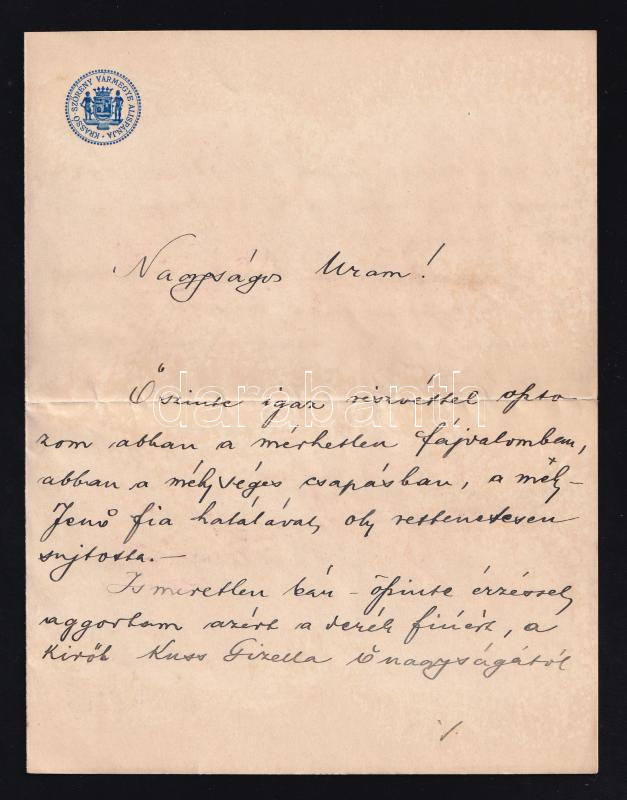 KRASSÓ-SZÖRÉNY VÁRMEGYE ALISPÁNJA
Nagyságos Uram!
Őszinte igaz részvéttel osto
darabanth
zom abban a mérhetlen fájdalomban,
abban a mély véges csapásban, a mely
Jenő fia halálával, oly rettenetesen
sujtotta.-
Ismeretlen bár - őszinte érzéssel
aggodtam azért a derék fiúért, a
kiről Kuss Gizella őnagyságától
./.